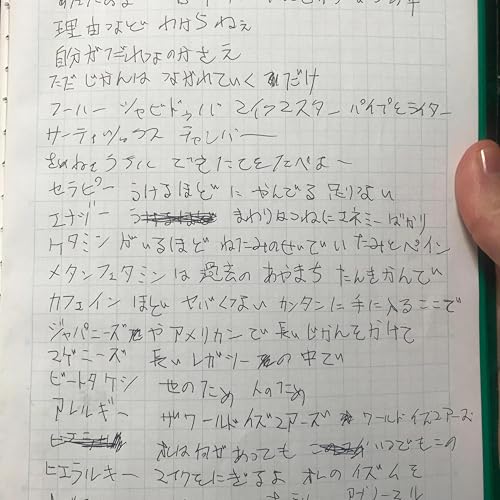 理由などわからねぇ
自分がだれなのかさえ
ただ じかんは ながれていく だけ
フーハー シャビドゥバ マイクマスター パイプとライター
サーティシックス チャンバー
できたてをたべよー
セラピー うけるほどに やんでる 足りない
エナジー まわりはつねにエネミーばかり
ケタミン がいるほど ねたみのせいでいたみとペイン
メタンフェタミンは 過去の あやまち たんきかんでい
カフェイン ほど ヤバくない カンタンに手に入るここで
ジャパニーズ や アメリカンで 長いじかんをかけて
マゲニーズ 長いレガシー の中で
ビートタケシ 他のため 人のため
アレルギー ザワールドイズユアーズ ワールドイズユアーズ
オレは何があっても いつでもこの
ヒエラルキー マイクをにぎるよ オレのイズムを